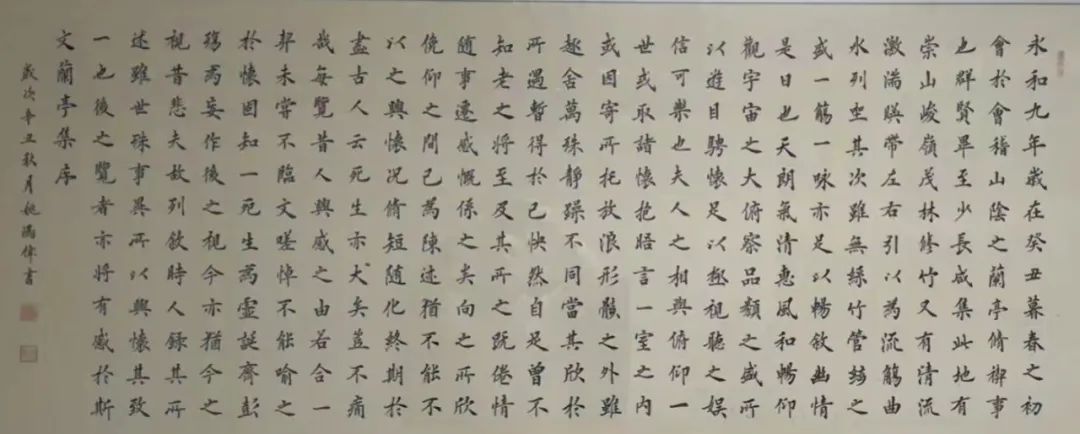 永和九年歲在癸丑暮春之初
會於會稽山陰之蘭亭脩禊事
也群賢畢至少長咸集此地有
崇山峻嶺茂林修竹又有清流
激湍暎帶左右引以為流觴曲
水列坐其次雖無絲竹管絃之
盛一觴一詠亦足以暢敘幽情
是日也天朗氣清惠風和暢仰
觀宇宙之大俯察品類之盛所
以遊目騁懷足以極視聽之娛
信可樂也夫人之相與俯仰一
世或取諸懷抱晤言一室之內
或因寄所托放浪形骸之外雖
趣舍萬殊靜躁不同當其欣於
所遇暫得於己快然自足曾不
知老之將至及其所之既倦情
隨事遷感慨係之矣向之所欣
俛仰之間已為陳迹猶不能不
以之興懷況脩短隨化終期於
盡古人云死生亦大矣豈不痛
哉每覽昔人興感之由若合一
契未嘗不臨文嗟悼不能喻之
於懷固知一死生為虛誕齊彭
殤為妄作後之視今亦猶今之
視昔悲夫故列敘時人錄其所
述雖世殊事異所以興懷其致
一也後之覽者亦將有感於斯
文蘭亭集序
歲次辛丑秋月姚偉書